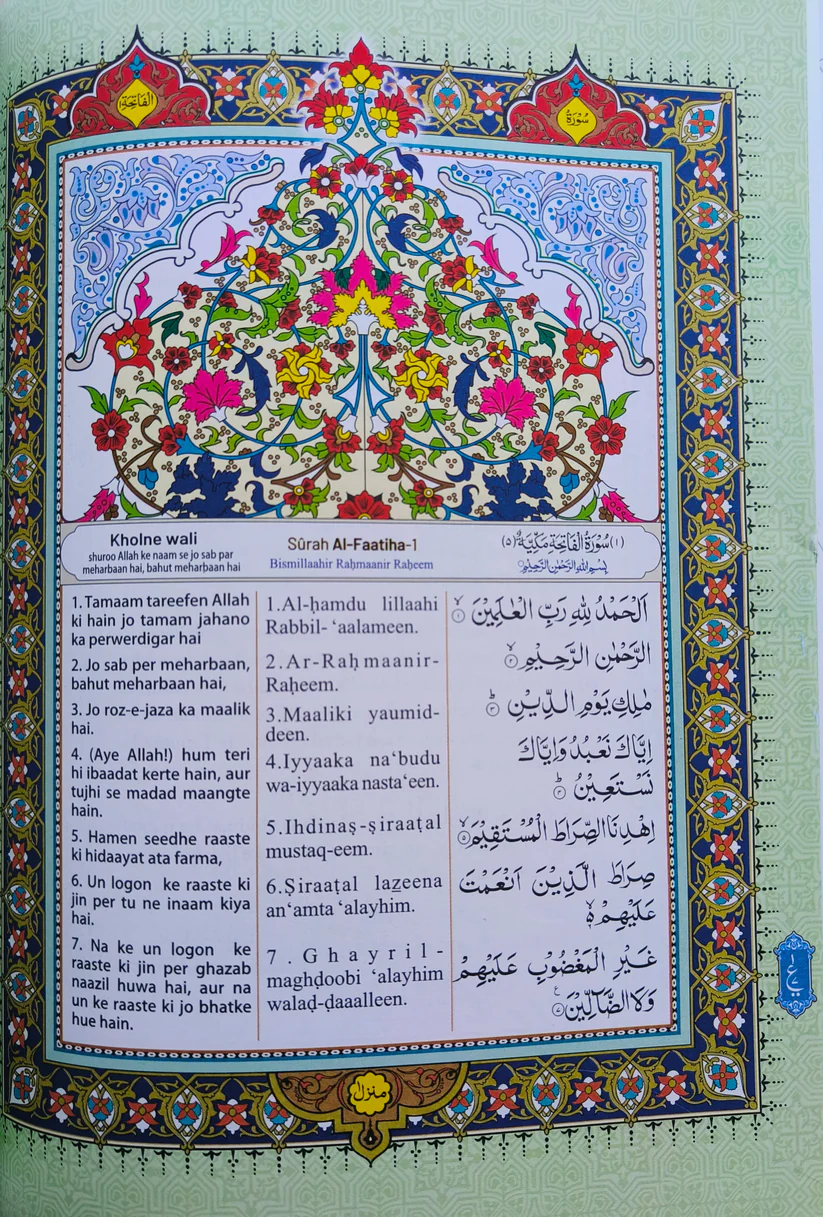 الفَاتِحَة
سُورَةُ
Kholne wali
shuroo Allah ke naam se jo sab par
meharbaan hai, bahut meharbaan hai
Sûrah Al-Faatiha-1
Bismillaahir Raḥmaanir Raḥeem
(١) سُوْرَةُ الْفَاتِحَةِ مَكِّيَّةٌ (٥)
بِسْمِ اللهِ الرَّحْمٰنِ الرَّحِيْمِ
1. Tamaam tareefen Allah
ki hain jo tamam jahano
ka perwerdigar hai
2. Jo sab per meharbaan,
bahut meharbaan hai,
3. Jo roz-e-jaza ka maalik
hai.
4. (Aye Allah!) hum teri
hi ibaadat kerte hain, aur
tujhi se madad maangte
hain.
5. Hamen seedhe raaste
ki hidaayat ata farma,
6. Un logon ke raaste ki
jin per tu ne inaam kiya
hai.
7. Na ke un logon ke
raaste ki jin per ghazab
naazil huwa hai, aur na
un ke raaste ki jo bhatke
hue hain.
1.Al-ḥamdu lillaahi
Rabbil- ‘aalameen.
2.Ar-Raḥmaanir-
Raḥeem.
3.Maaliki yaumid-
deen.
4.Iyyaaka na‘budu
wa-iyyaaka nasta‘een.
5.Ihdinaṣ-ṣiraaṭal
mustaq-eem.
6.Ṣiraaṭal lazeena
an‘amta ‘alayhim.
7.Ghayril-
maghḍoobi ‘alayhim
walaḍ-ḍaaalleen.
اَلْحَمْدُ لِلّٰهِ رَبِّ الْعٰلَمِيْنَ ۙ﴿١﴾
الرَّحْمٰنِ الرَّحِيْمِ ۙ﴿٢﴾
مٰلِكِ يَوْمِ الدِّيْنِ ؕ﴿٣﴾
اِيَّاكَ نَعْبُدُ وَاِيَّاكَ
نَسْتَعِيْنُ ؕ﴿٤﴾
اِهْدِنَا الصِّرَاطَ الْمُسْتَقِيْمَ ۙ﴿٥﴾
صِرَاطَ الَّذِيْنَ اَنْعَمْتَ
عَلَيْهِمْ ۙ۬ۦ﴿٦﴾
غَيْرِ الْمَغْضُوْبِ عَلَيْهِمْ
وَلَا الضَّآلِّيْنَ ﴿٧﴾
ع
منزل